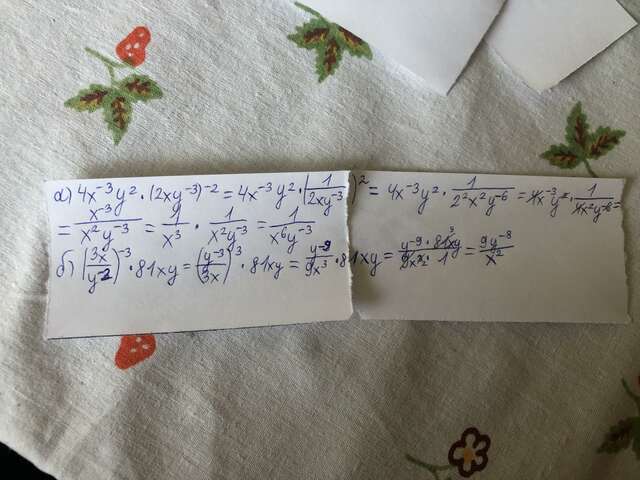 а) 4x⁻³y² · (2xy⁻³)⁻² = 4x⁻³y² · (1/(2xy⁻³))² = 4x⁻³y² · 1/(2²x²y⁻⁶) = 4x⁻³y² · 1/(4x²y⁻⁶) =
= x⁻³y/(x²y⁻³) = 1/x³ · 1/(x²y⁻³) = 1/(x⁶y⁻³)
б) (3x/y⁻²)⁻³ · 81xy = (y⁻³/(3x))³ · 81xy = y⁻⁹/(9x³) · 81xy = (y⁻⁹ · 81xy)/(9x² · 1) = 9y⁻⁸/x²